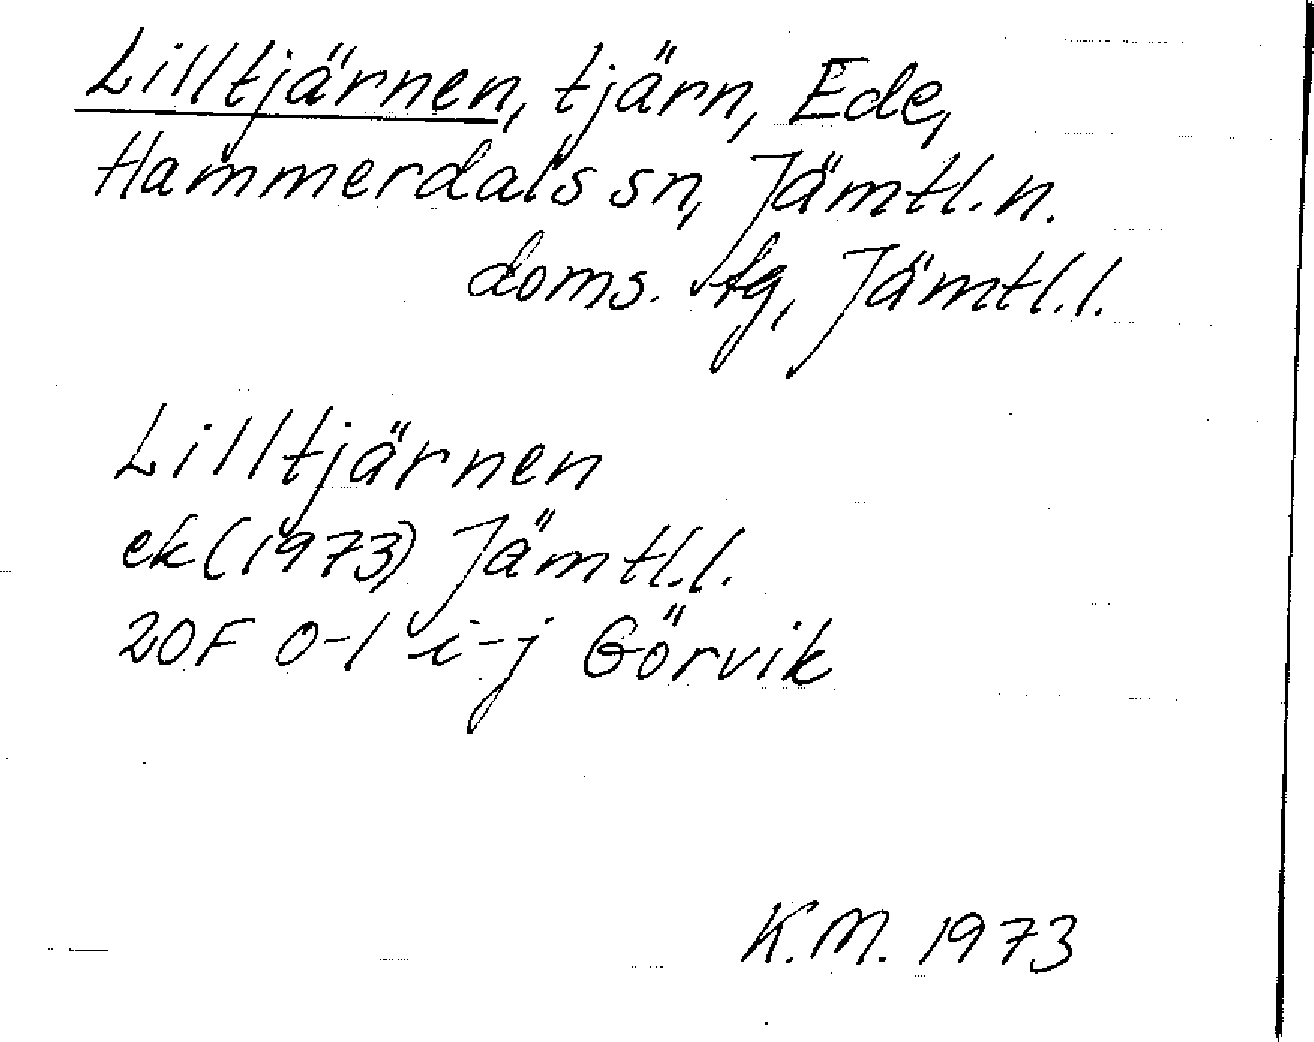 Lilltjärnen, tjärn, Ede,
Hammerdals sn, Jämtl. n.
doms. tg, Jämtl. l.
Lilltjärnen
ek (1973) Jämtl. l.
20F 0-1 i-j Görvik
K.M. 1973